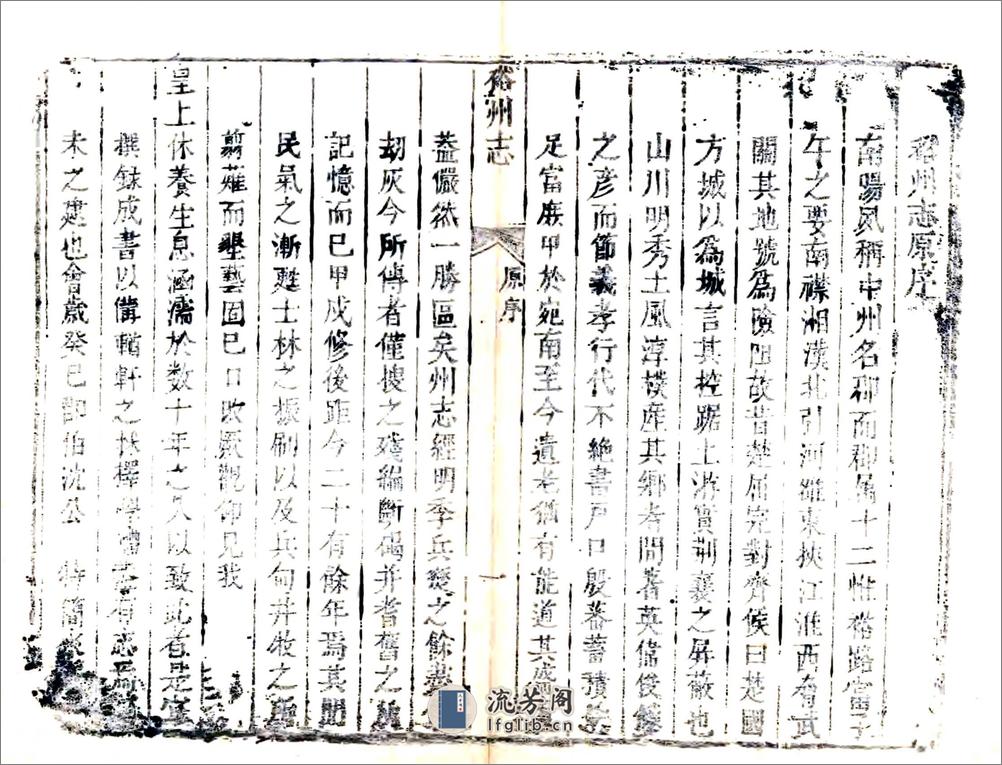 裕州志原序
南陽夙稱中州名郡而郡屬十二惟裕路當子
午之要南襟湘漢北引河雒東挾江淮西有武
關其地號為險阻故昔楚屈完對齊侯曰楚國
方城以為城言其控踞上游實荆襄之屏蔽也
山川明秀土風淳樸產其鄉者間著英偉俊
之彥而節義孝行代不絶書戸口殷蕃蓄積
足當庶甲於宛南至今遺老猶有能道其盛
裕州志
原序
一
蓋儼然一勝區矣州志經明季兵燹之餘
刼灰今所傳者僅摉之殘編斷碣并耆舊之
記憶而已甲戌修後距今二十有餘年焉其間
民氣之漸甦士林之振刷以及兵旬井牧之
翦薙而墾藝固已口改厥觀仰見我
皇上休養生息涵濡於数十年之久以致此者是宜
撰錄成書以備輶軒之採擇有志焉
未之建也會歲癸巳郡伯沈公 特簡
流芳阁
lfglib.cn